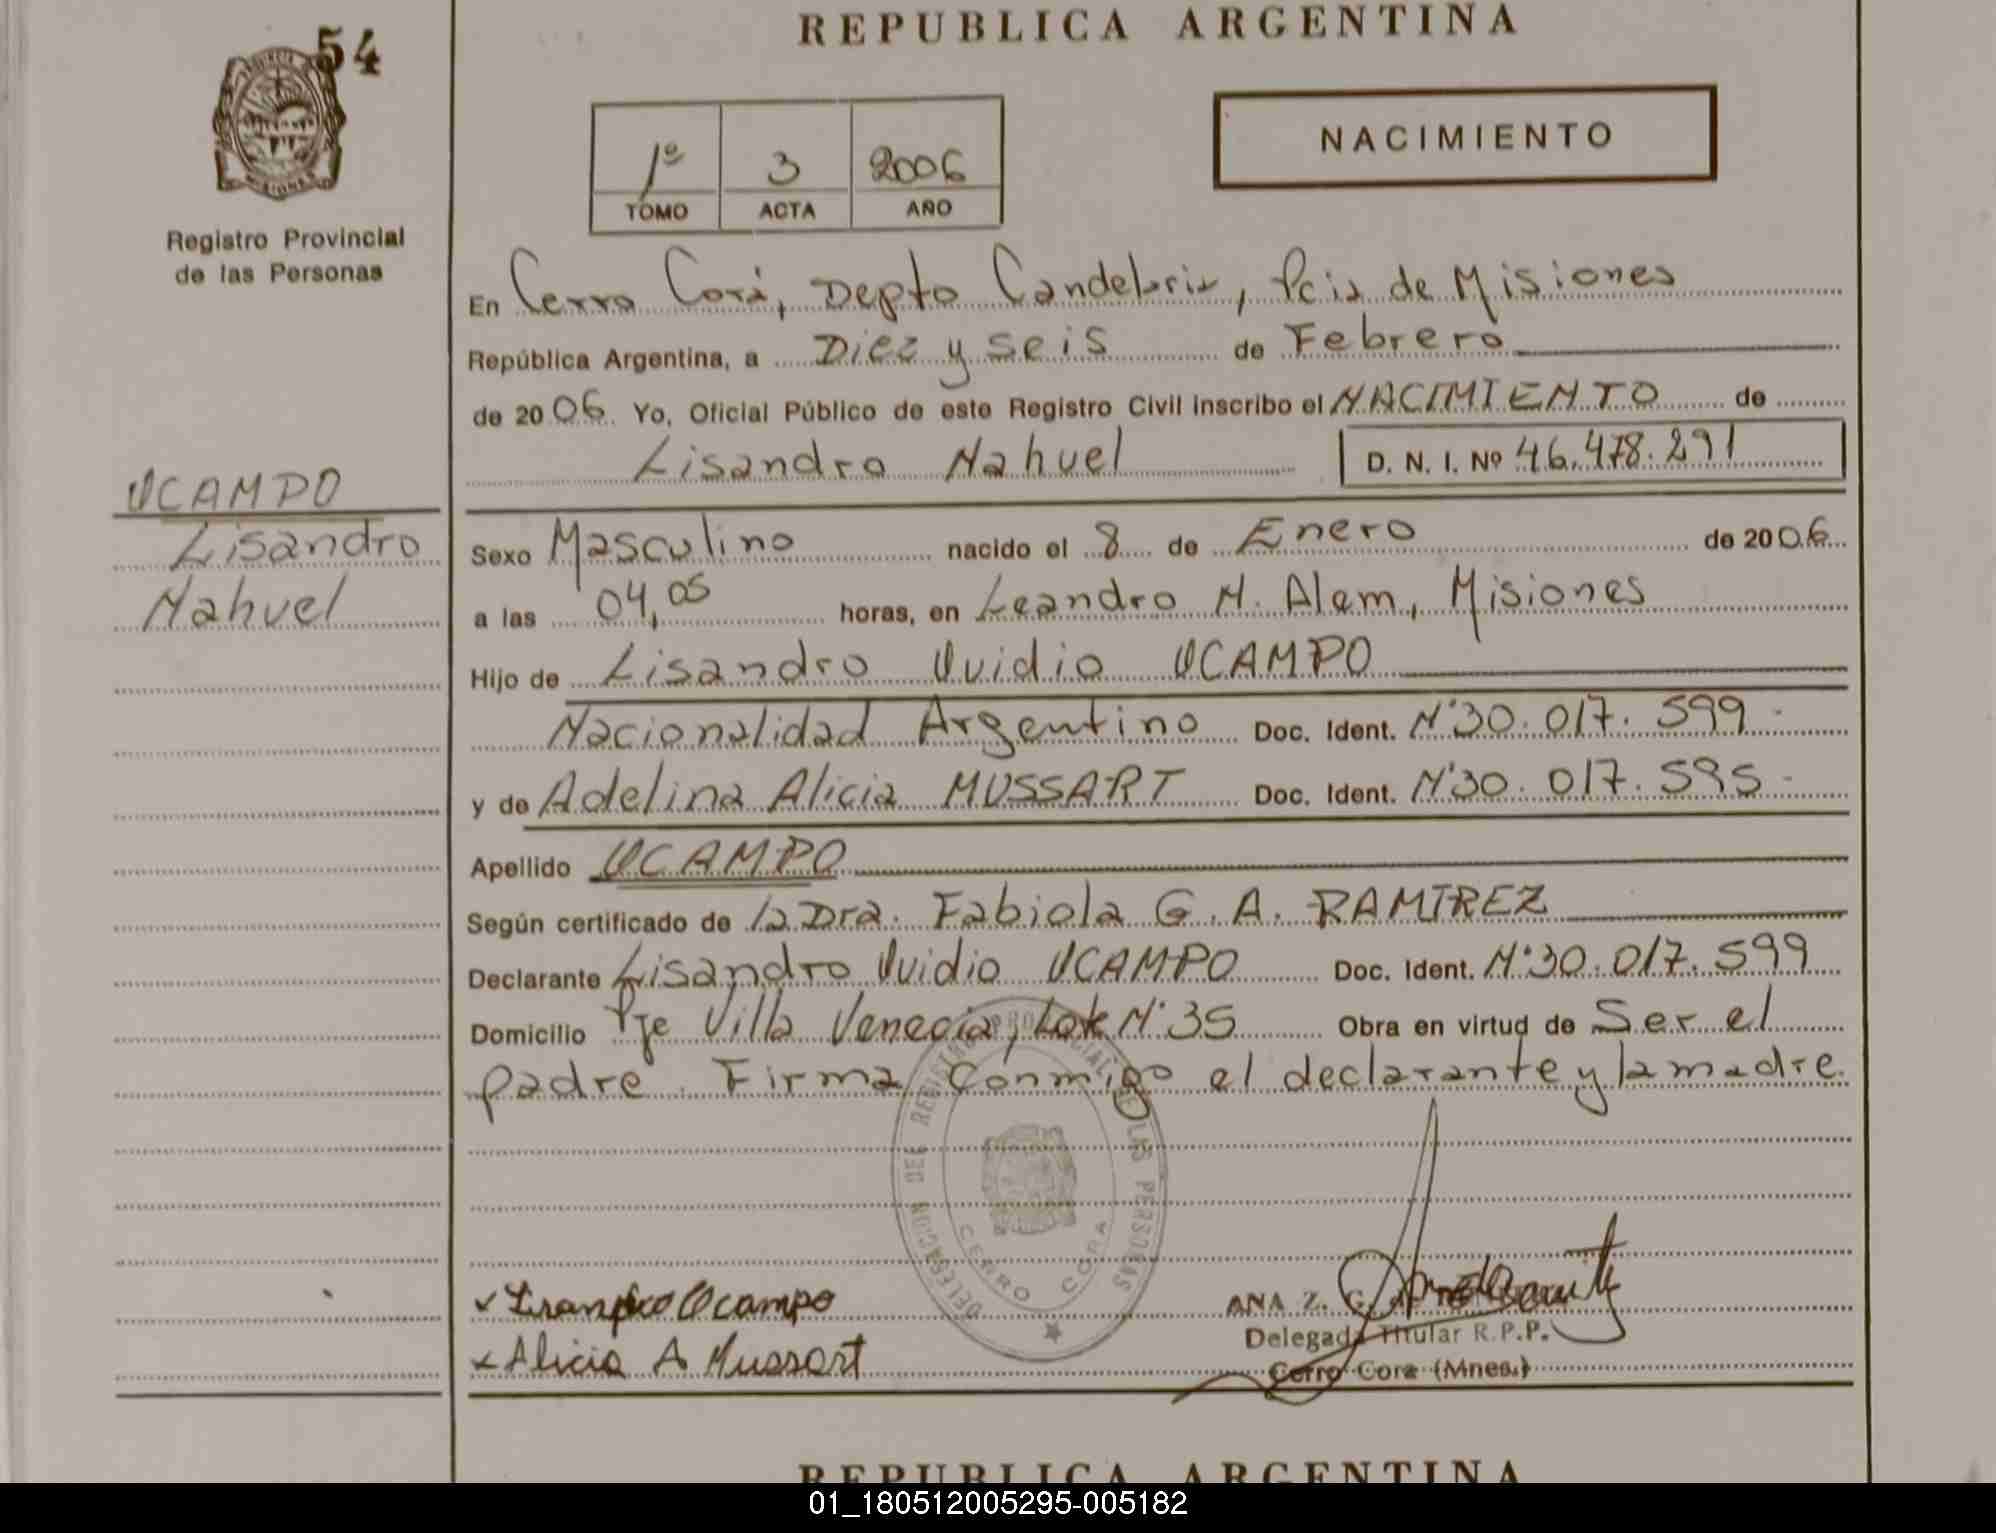 54
REPUBLICA ARGENTINA
PROVINCIA MISIONES
Registro Provincial
de las Personas
1º 3 2006
TOMO ACTA AÑO
NACIMIENTO
En Cerro Corá, Depto Candelaria, Pcia de Misiones
República Argentina, a Diez y seis de Febrero
de 2006 Yo, Oficial Público de este Registro Civil inscribo el NACIMIENTO de
Lisandro Nahuel D. N. I. Nº 46.478.291
OCAMPO
Lisandro
Nahuel
Sexo Masculino nacido el 8 de Enero de 2006
a las 04,05 horas, en Leandro N. Alem, Misiones
Hijo de Lisandro Ovidio OCAMPO
Nacionalidad Argentino Doc. Ident. Nº 30.017.599
y de Adelina Alicia MUSSART Doc. Ident. Nº 30.017.595
Apellido OCAMPO
Según certificado de la Dra. Fabiola G. A. RAMIREZ
Declarante Lisandro Ovidio OCAMPO Doc. Ident. Nº 30.017.599
Domicilio Pje Villa Venecia, Lote Nº 35 Obra en virtud de Ser el
padre. Firma Conmigo el declarante y la madre.
DELEGACION DEL REGISTRO PROVINCIAL DE LAS PERSONAS
CERRO CORA
Ocampo
Alicia A Mussart
ANA Z. G.
Delegada Titular R.P.P.
Cerro Cora (Mnes.)
REPUBLICA ARGENTINA
01_180512005295-005182